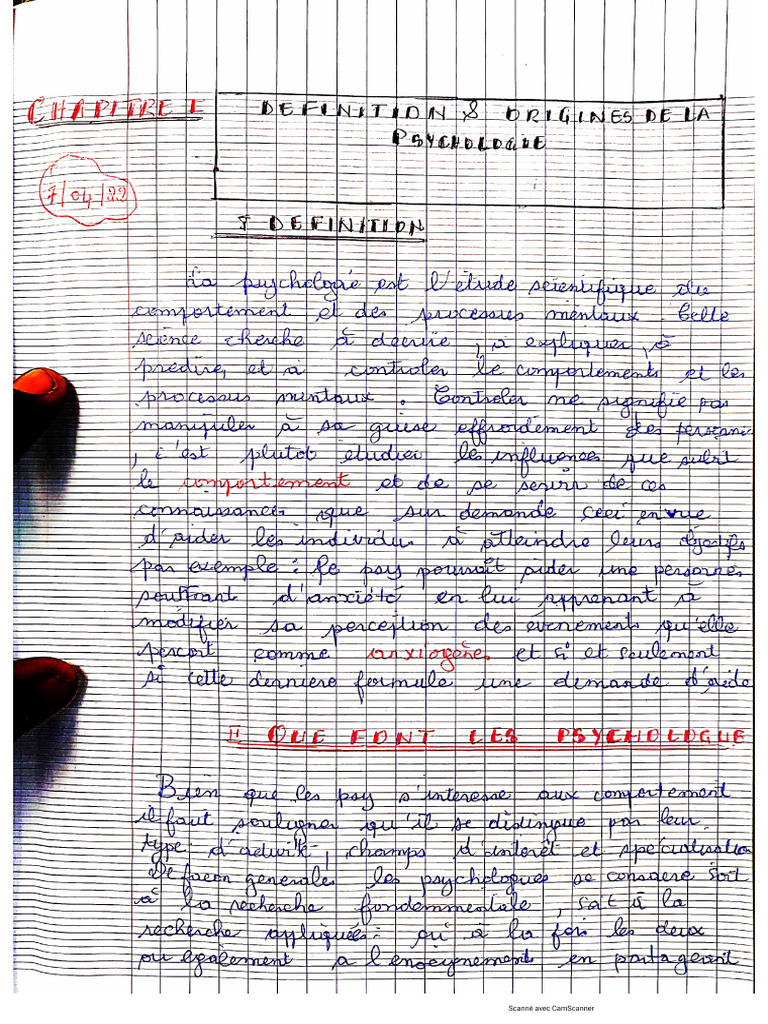 CHAPITRE I
DEFINITION & ORIGINES DE LA
PSYCHOLOGUE
7/04/22
I DEFINITION
La psychologie est l'étude scientifique du
comportement et des processus mentaux. Cette
science cherche à decrire, à expliquer, à
predire, et à controler le comportements et les
processus mentaux. Controler ne signifie pas
manipuler à sa guise effroidement des
, c'est plutot etudier les influences que subit
le comportement et de se servir de ces
connaissances que sur demande ceci en vue
d'aider les individu à atteindre leurs objectifs
par exemple : le psy pourrait aider une personnes
souffrant d'anxiété en lui apprenant à
modifier sa perception des évenements qu'elle
percoit comme anxiogène, et si et seulement
si cette derniere formule une demande d'aide
II QUE FONT LES PSYCHOLOGUE
Bien que les psy s'interesse aux comportement
il faut souligner qu'il se distingue par leur
type d'activité, champs d'intérêt et spécialisation
De facon generales les psychologues se consacre soit
à la recherche fondemmentale, soit à la
recherche appliquée : ou à la fois les deux
ou également à l'enseignement en partageant
Scanné avec CamScanner